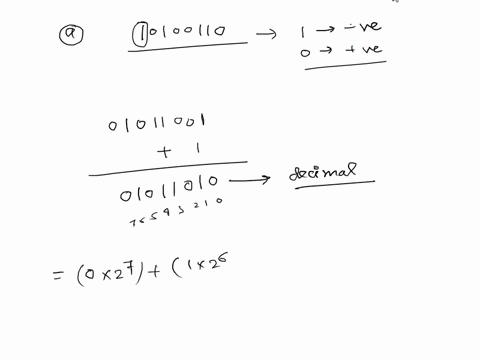 (a) 10100110 → 1 → -ve
0 → +ve
01011001
+ 1
01011010 → decimal
7 6 5 4 3 2 1 0
= (0 × 2^7) + (1 × 2^6